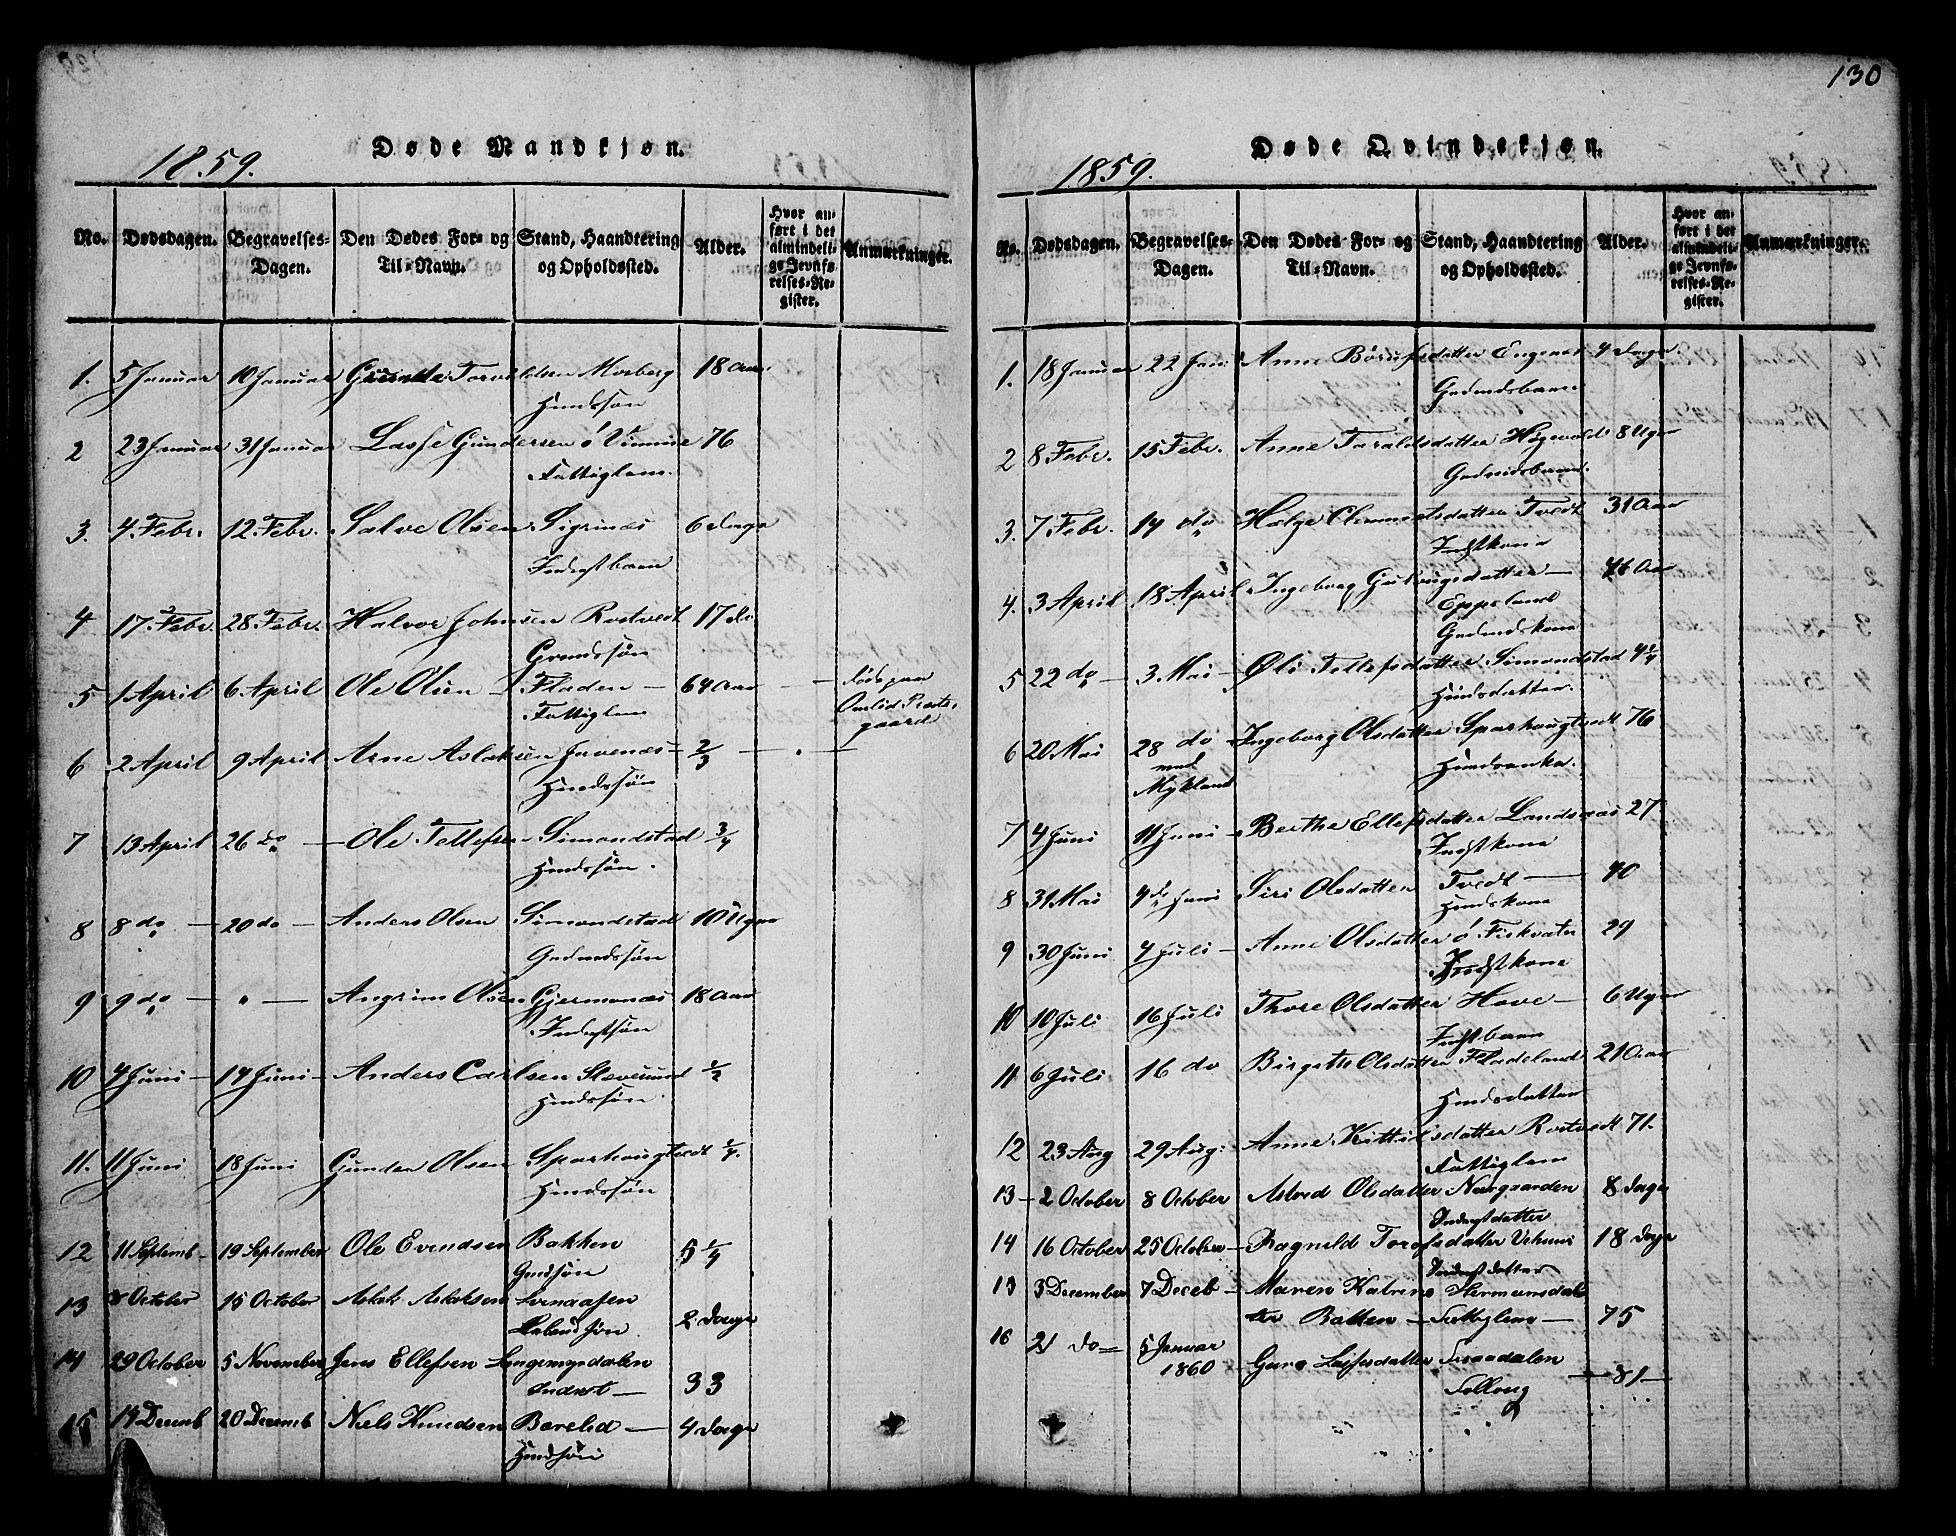 130
Døde Mandkjøn.
1859.
No. Dødsdagen. Begravelses-Dagen. Den Dødes For- og Til-Navn. Stand, Haandtering og Opholdssted. Alder. Hvor anført i det almindelige Jevnførelses-Register. Anmærkninger.
1. 5 Januar 10 Januar Torvaldsen Mosberg 18 Aar
Huusssøn
2 23 Januar 31 Januar Lasse Gundersen ö Vimme 76
Fattiglem.
3. 4. Febr. 12. Febr. Salve Olsen Sigrinæs 6 Dage
Inderstbarn
4 17. Febr. 28. Febr. Halvor Johnsen Rostvedt 17 do
5 1 April 6 April Ole Olsen Fladen 64 Aar Dødsgaar
Fattiglem Omlid Præste-
gaard
6 2 April 9 April Arne Aslaksen Juvenæs 2/3
7 13 April 26 do Ole Tellefsen Simondstad 3/4
8 8 do 20 do Anders Olsen Simondstad 10 Uger
Gaardmdssøn
9 9 do " Angrim Olsen Gjermonæs 18 Aar
Inderstsøn
10 4 Juni 14 Juni Anders Carlsen 1/2
11. 11 Juni 18 Juni Gunder Olsen Sparhougtvedt 1/4.
12 11 Septemb 19 September Ole Evendsen Bakken 5 1/4
13 8 October 15 October Aslak Aslaksen 2 Dage
14 29 October 5 November Jens Ellefsen Lyngemyrdalen
Inderst 33
15 14 Decemb 20 Decemb Niels Knudsen Borelid 4 Dage
Døde Qvindekjøn.
1859.
No. Dødsdagen. Begravelses-Dagen. Den Dødes For- og Til-Navn. Stand, Haandtering og Opholdssted. Alder. Hvor anført i det almindelige Jevnførelses-Register. Anmærkninger.
1. 18 Januar 22 Jan: Anne Börufsdatter Engenes 4 Dage.
2 8 Febr. 15 Febr. Anne Taraldsdatter Högevold 8 Uger
3. 7 Febr. 14 do Helge Clemmetsdatter Tvedt 31 Aar
Indstkone
4. 3 April 18 April Ingeborg Gutangsdatter 46 Aar
Eppeland
Gaardmdskone
5 22 do 3 Mai Øli Tellefsdatter Simondstad 4 1/4
Huusdatter.
6 20 Mai 28 do Ingeborg Olsdatter Sparhougtvedt 76
ved
Mykland
7 4 Juni 11 Juni Berthe Ellefsdatter Landsaas 27
Indstkone
8 31 Mai 4 de Juni Siri Olsdatter Tvedt 40
9 30 Juni 4 Juli Anne Olsdatter ö Fiskvatn 29
Indstkone
10 10 Juli 16 Juli Thore Olsdatter Hove 6 Uger
Indstbarn
11 6 Juli 16 do Birgithe Olsdatter Fladeland 21 Aar
12 23 Aug 29 Aug: Anne Kittilsdatter Rostvedt 71.
Fattiglem
13 2 October 8 October Astred Olsdatter Nærgaarden 8 Dage
Inderstdatter
14 16 October 25 October Ragnild Torufsdatter 18 Dage
Inderst datter
15 3 December 7 Deceb Maren Katrine Hermansdat-
ter Bakken Fattiglem 75
16 21 do 5 Januar
1860 Guro Leifsdatter
81